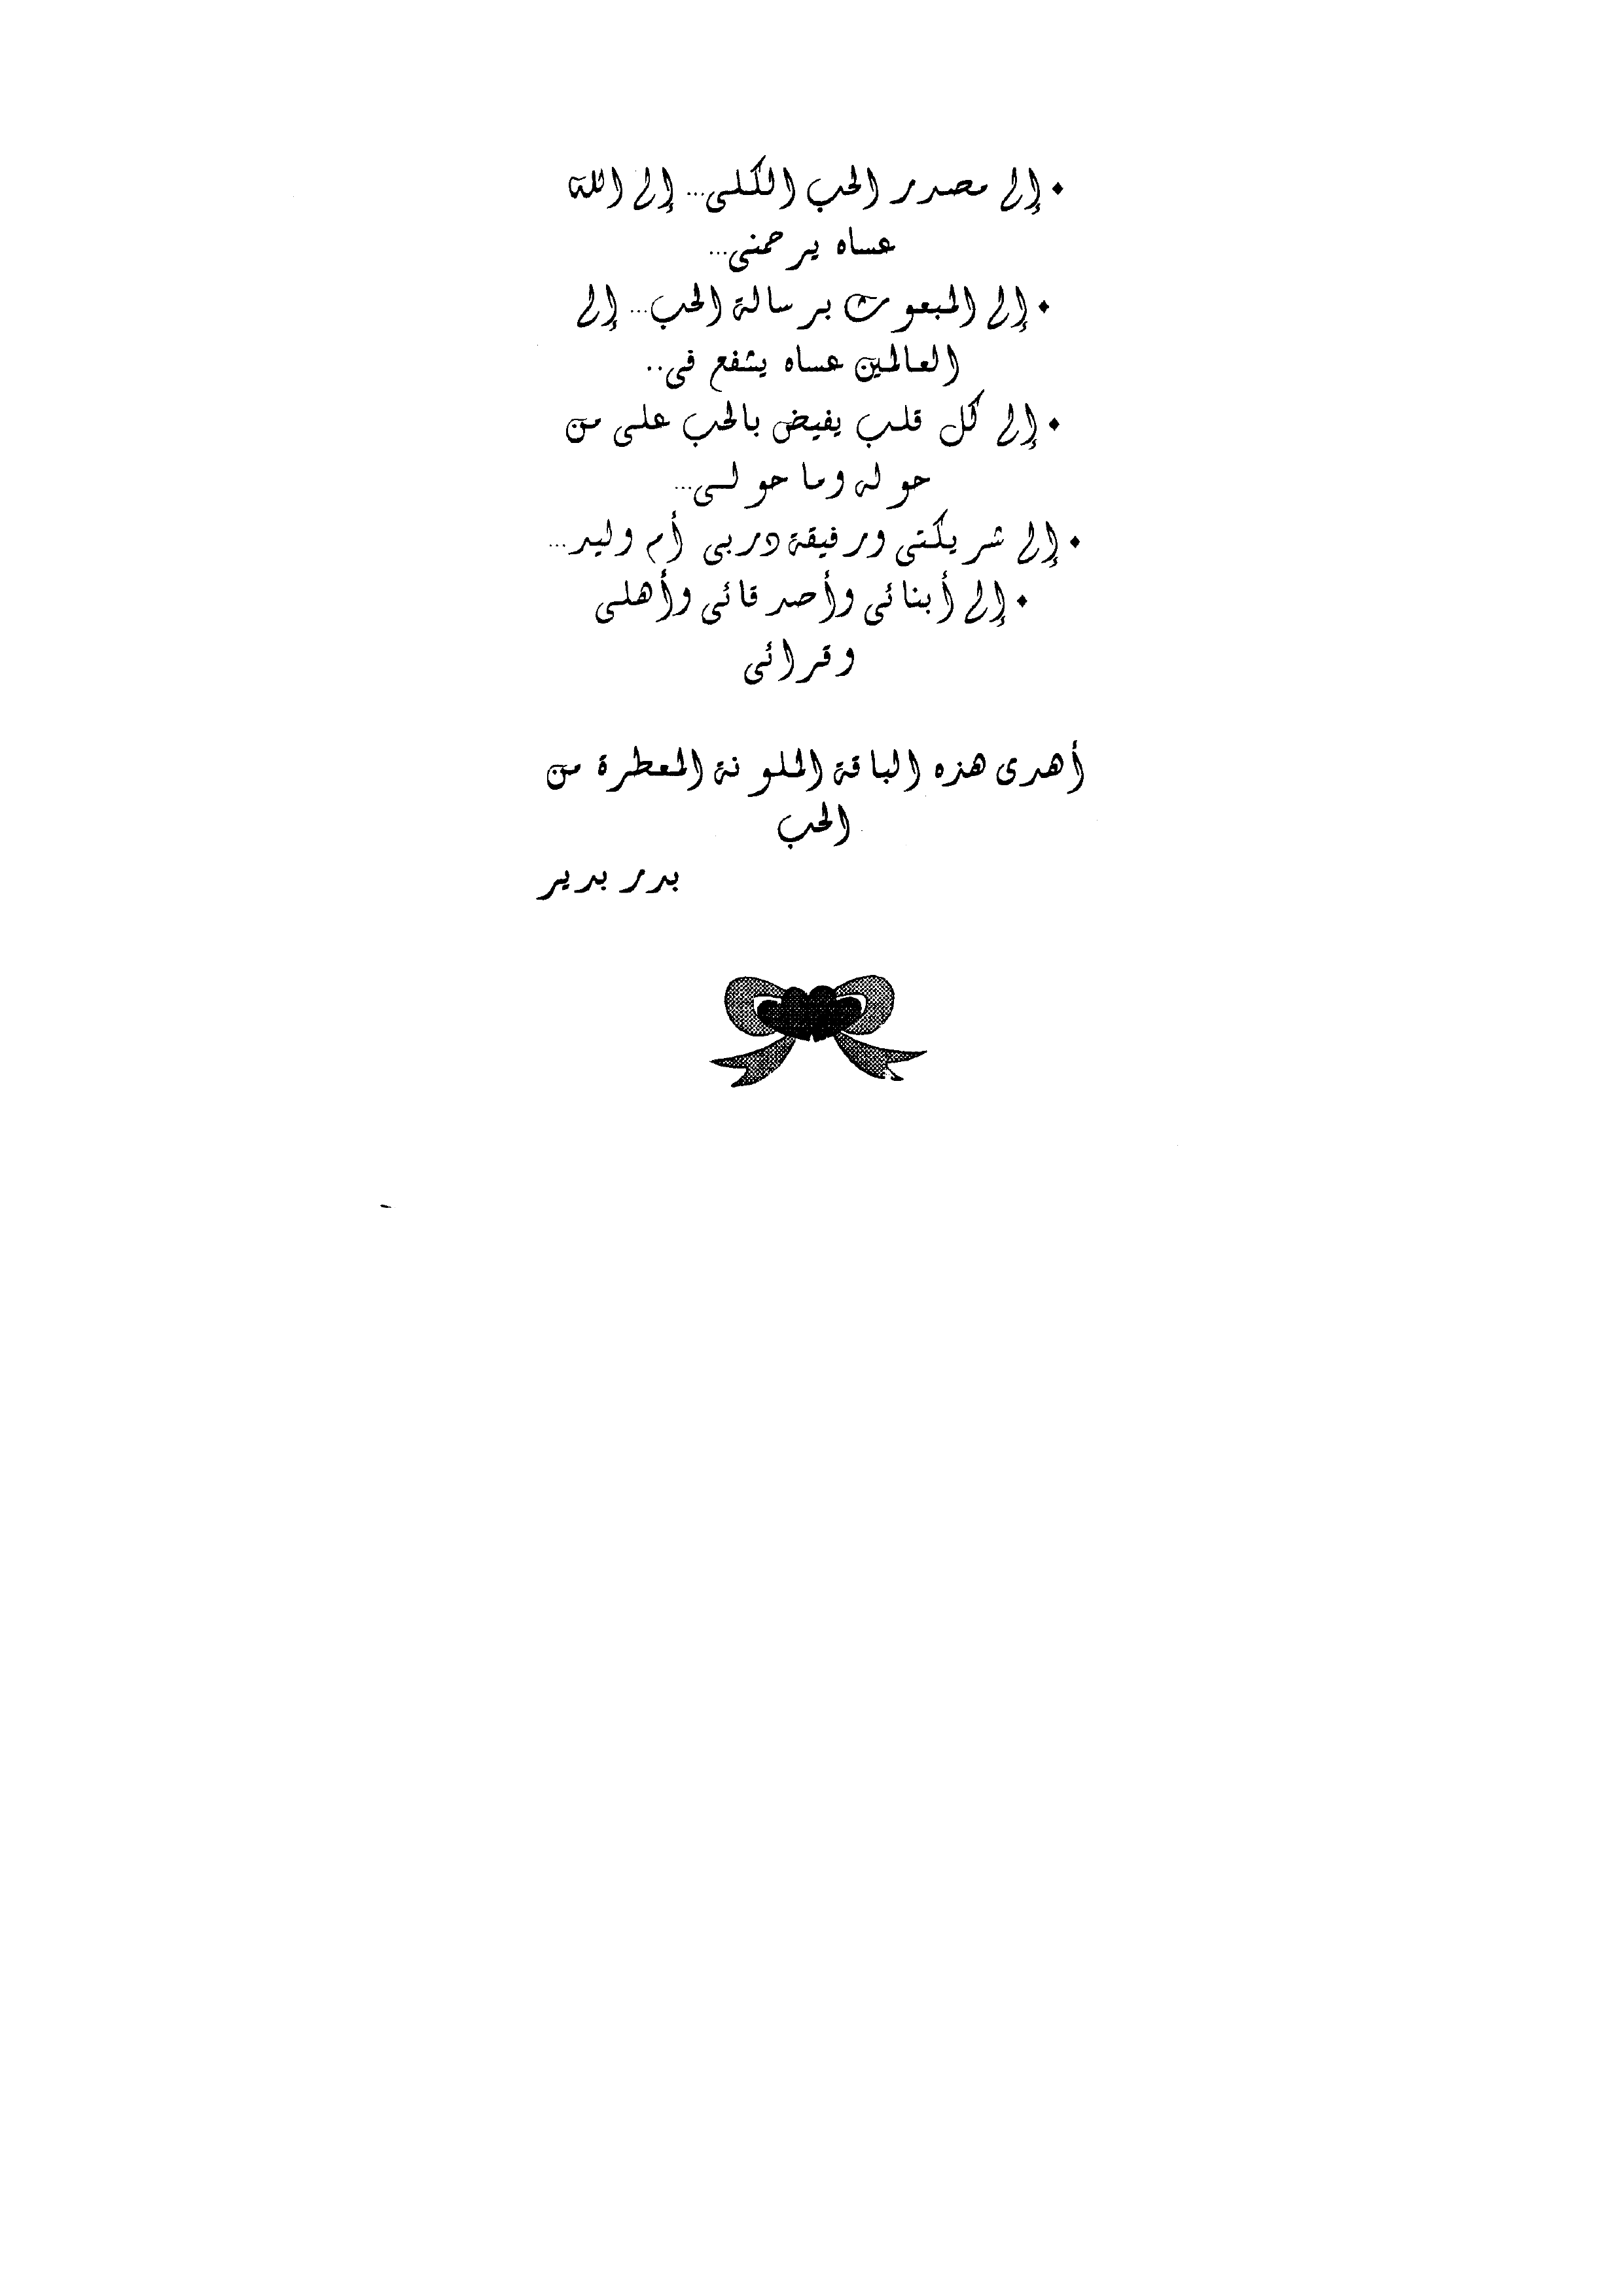 • إلى مصدر الحب الكلى... إلى الله
عساه يرحمنى...
• إلى المبعوث برسالة الحب... إلى
العالمين عساه يشفع فى..
• إلى كل قلب يفيض بالحب على من
حوله وما حولـى...
• إلى شريكتى ورفيقة دربى أم وليد...
• إلى أبنائى وأصدقائى وأهلى
وقرائى
أهدى هذه الباقة الملونة المعطرة من
الحب
بدر بدير